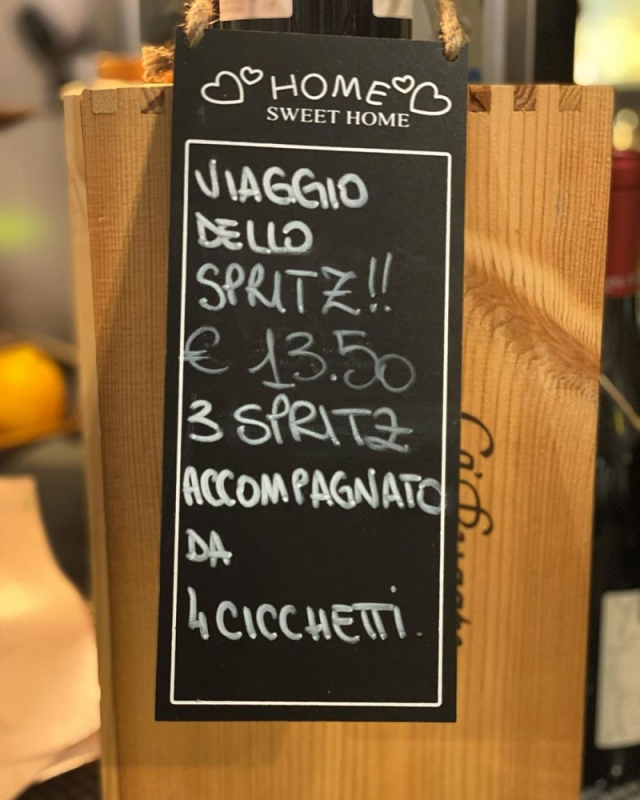 HOME
SWEET HOME
VIAGGIO
DELLO
SPRITZ!!
€ 13.50
3 SPRITZ
ACCOMPAGNATO
DA
4 CICCHETTI.